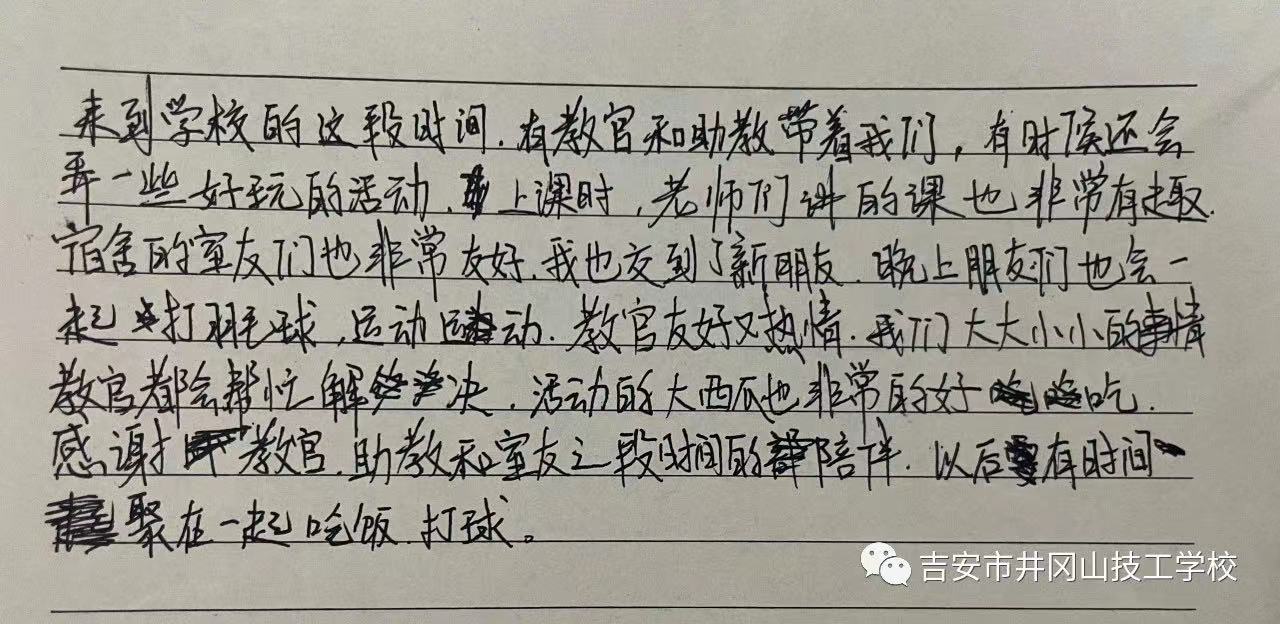 来到学校的这段时间.有教官和助教带着我们，有时候还会
弄一些好玩的活动.上课时,老师们讲的课也非常有趣.
宿舍的室友们也非常友好.我也交到了新朋友.晚上朋友们也会一
起打羽毛球,运动运动.教官友好又热情.我们大大小小的事情
教官都会帮忙解决.活动的大西瓜也非常的好吃.
感谢教官.助教和室友之段时间的陪伴.以后有时间
聚在一起吃饭.打球。
吉安市井冈山技工学校